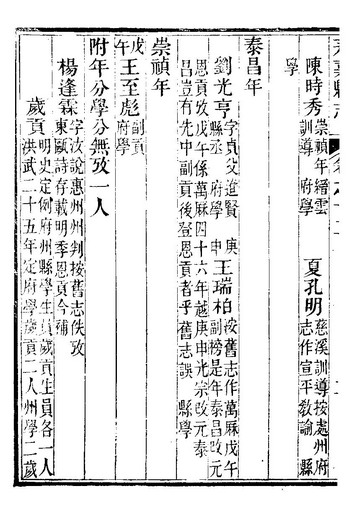 陳時秀
崇禎年縉雲
訓導 府學
夏孔明
慈溪訓導按處州府
志作宣平教諭 縣
學
泰昌年
劉光亨
字貞父進賢
縣丞 府學
庚
申
王瑞柏
按舊志作萬厤戊午
副榜是年泰昌改元
恩貢攷戊午係萬厤四十六年越庚申光宗改元泰
昌豈有先中副貢後登恩貢者乎舊志誤 縣學
崇禎年
戊
午
王至彪
副貢
府學
附年分學分無攷一人
楊逢霖
字汝說惠州州判按舊志佚攷
東甌詩存載明季恩貢今補
歲貢
明史定例府州縣學生員歲貢生員各一人
洪武二十五年定府學歲貢二人州學二歲